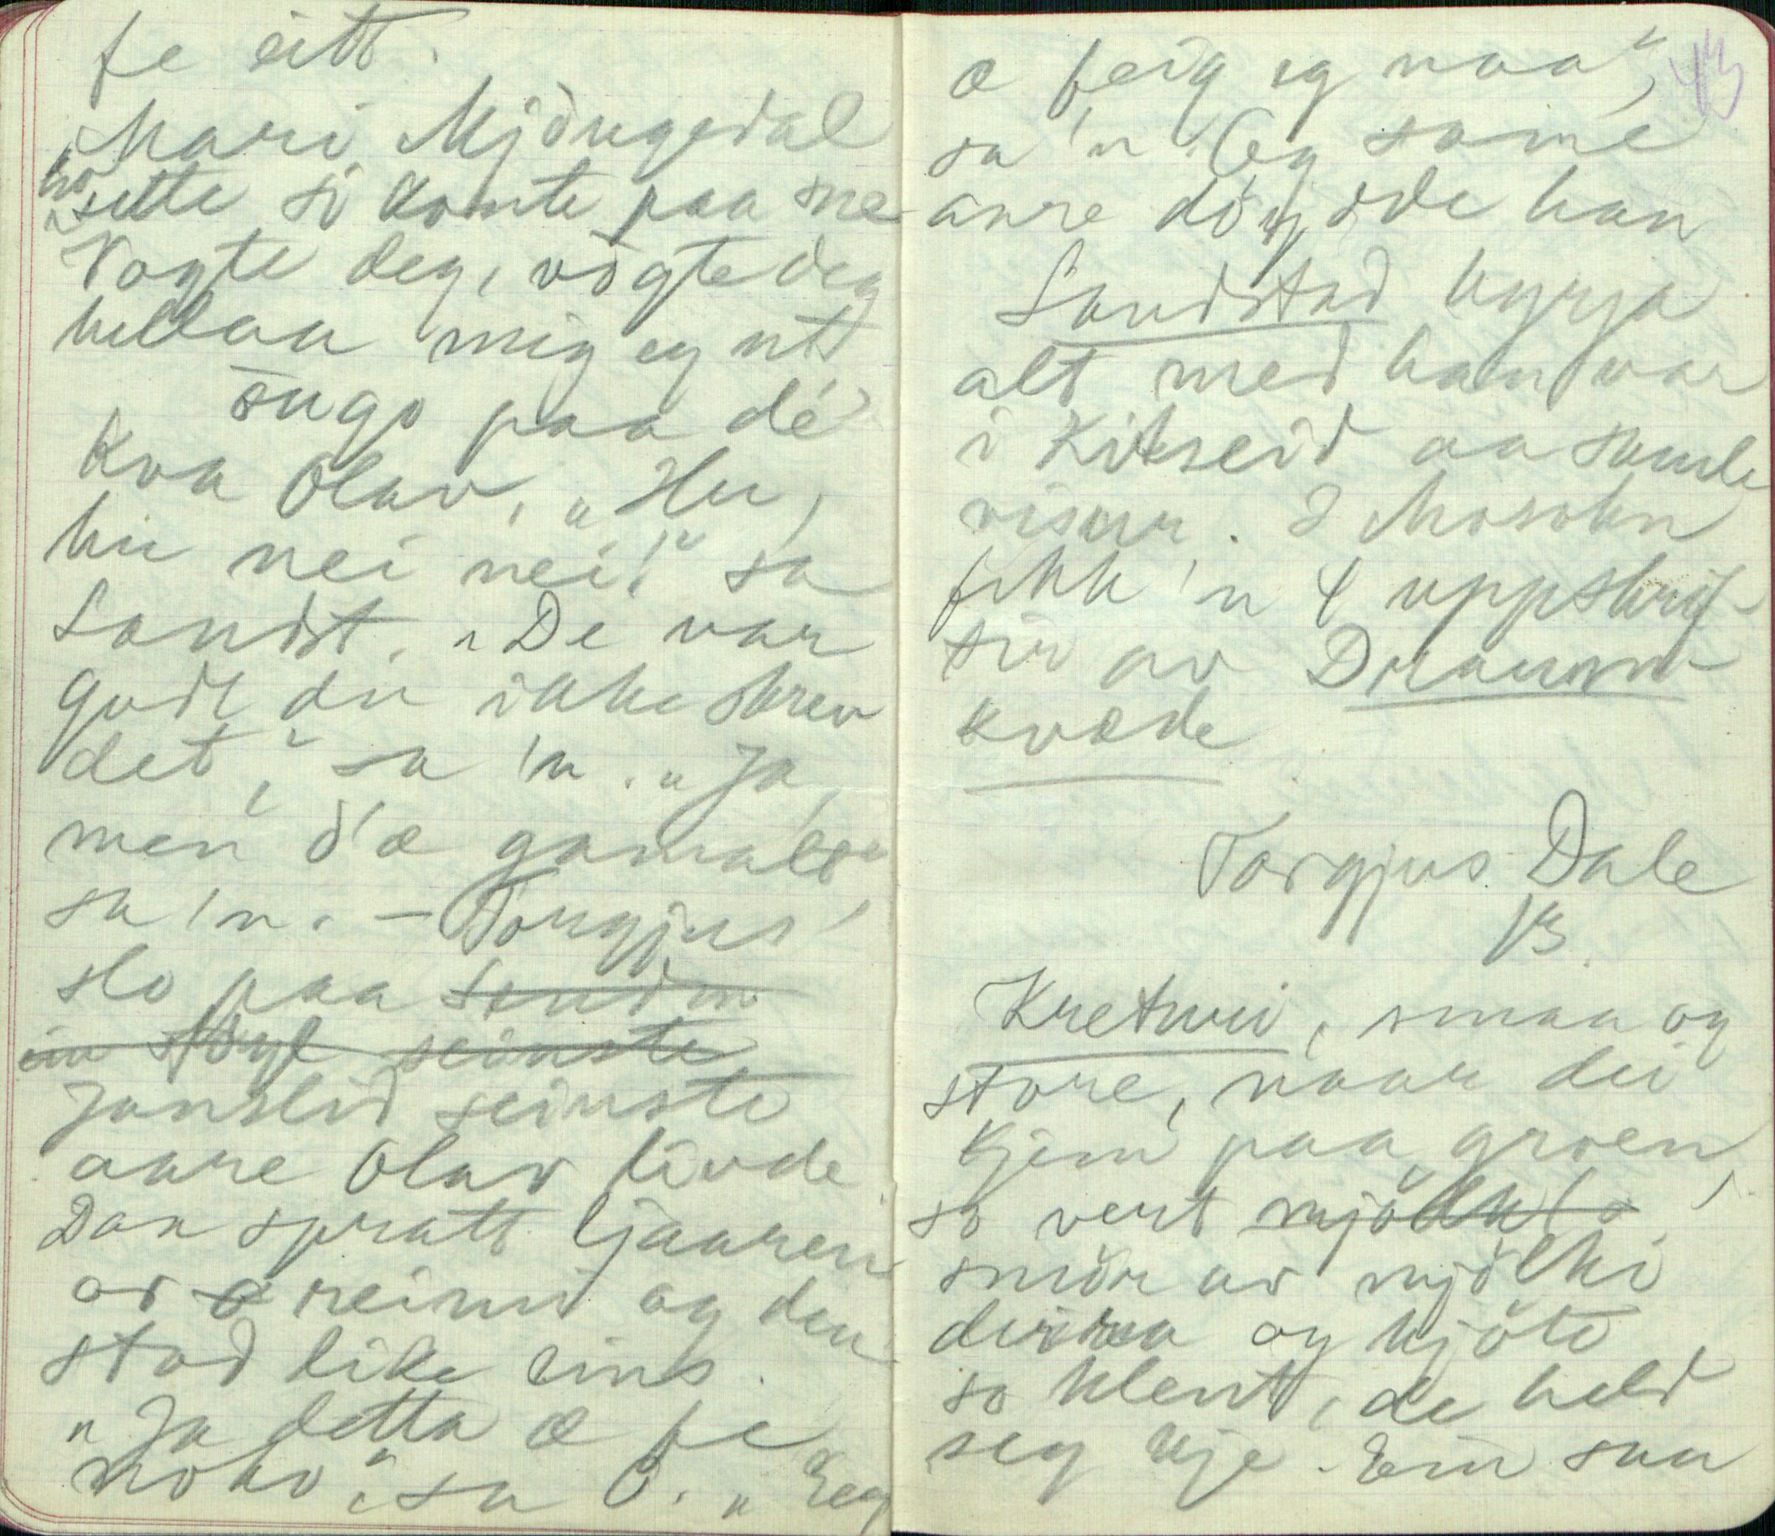 fe eitt.
Mari Mjöngedal
ho sette si konte paa sne
Vogte deg, vogte deg
hellaa mig eg ut
sugo paa dé
Kva Olav, „Hu,
hu nei nei!" sa
Landst. „De var
godt du ikke skrev
det," sa 'n. „Ja,
men d'æ gamalt"
sa 'n. – Torgjus
slo paa
seinste
Jonslid seinste
aare Olav livde
Daa spratt ljaaren
or reimi og den
stod like eins.
„Ja detta æ fe
noko", sa O. „Eg
æ feig eg naa",
sa 'n. Og same
aare döydde han
Landstad byrja
alt med han var
i Kvitseid aa samle
visur. I Mosokn
fekk 'n 4 uppskrif-
tir av Draum-
kvæde
43
Torgjus Dale
13.
Kreturi, smaa og
store, naar dei
kjem paa groen,
so vert mjölki
smör av mjölki
deira og kjöte
so klent, de held
seg kje. Ein saa